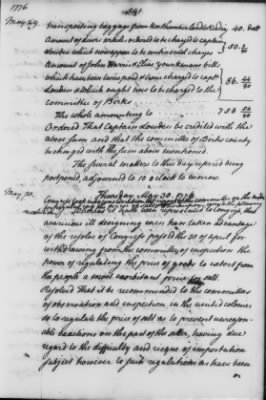 1776
241
May 29. transporting baggage from Northumberland to Reading 40. Doll
Amount of
ordered to be charged to captain
Louden which now appear to be continental charges
Amount of John Harris
bills
which have been twice paid & were charged to capt
Louden & which ought now to be charged to the
committee of Berks
The whole amounting to
Ordered That Captain Louden be credited with the
above sum and that the committee of Berks county
be charged with the sum above mentioned.
The several matters to this day referred being
postponed, adjourned to 10 o'Clock to morrow.
Thursday May 30. 1776
May 30.
Whereas it hath been represented to Congress, that
avaricious ill designing men have taken advantage
of the resolve of Congress passed the 30 of april for
withdrawing from the committees of inspection the
power of regulating the price of goods to extort from
the people a most exorbitant price for salt.
Resolved That it be recommended to the committees
of observation and inspection in the united colonies
so to regulate the price of salt as to prevent unreason-
able exactions on the part of the seller, having due
regard to the difficulty and risque of importation
subject however to such regulations as have been
or